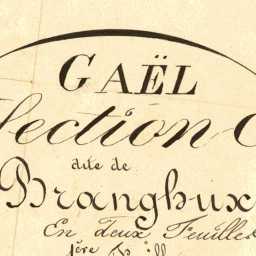 GAËL
Section C
dite de
Branghux
En deux Feuilles
1ère